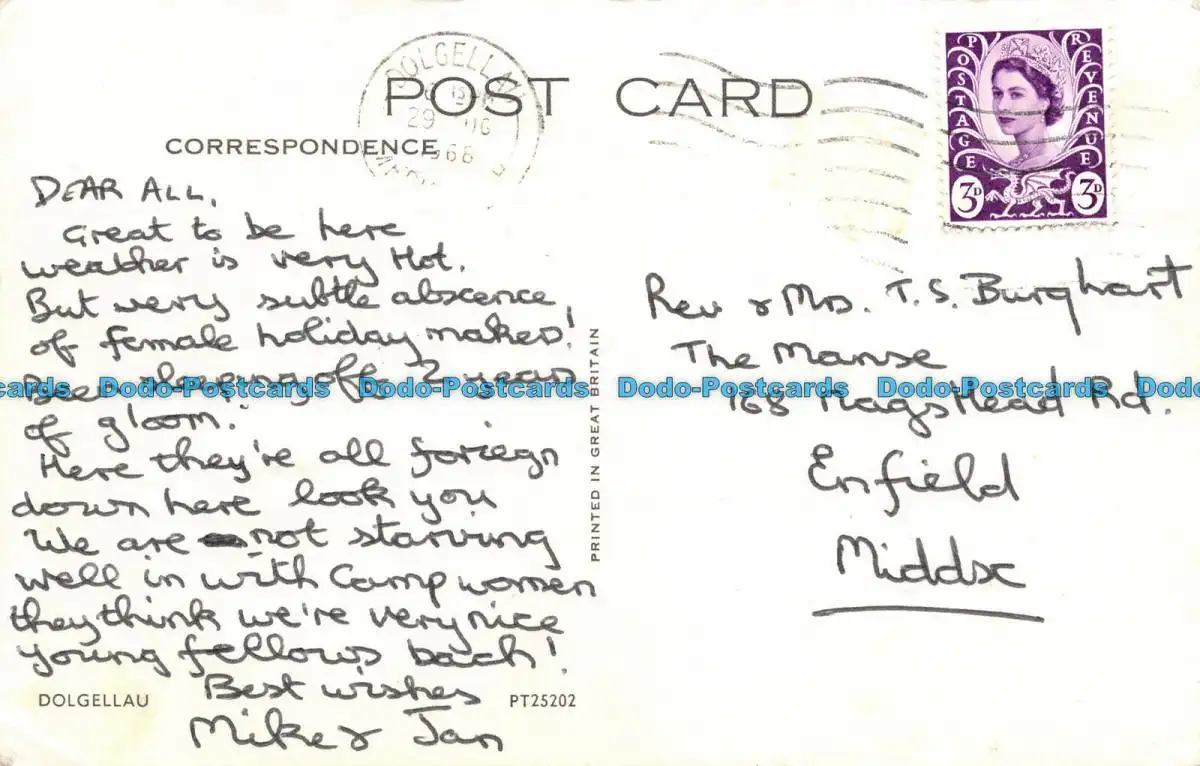 POST CARD
DOLGELLAU
29 AUG
1966
POSTAGE REVENUE
3D 3D
CORRESPONDENCE
DEAR ALL,
Great to be here
weather is very Hot.
But very subtle abscence
of female holiday makers!
Been sleeping off 2 years
of gloom!
Here they're all foriegn
down here look you
We are not starving
well in with Camp women
they think we're very nice
young fellows bach!
Best wishes
Mike & Jan
DOLGELLAU
PT25202
PRINTED IN GREAT BRITAIN
Rev & Mrs. T.S. Burghart
The Manse
168 Hagshead Rd.
Enfield
Middsx
Dodo-Postcards Dodo-Postcards Dodo-Postcards Dodo-Postcards